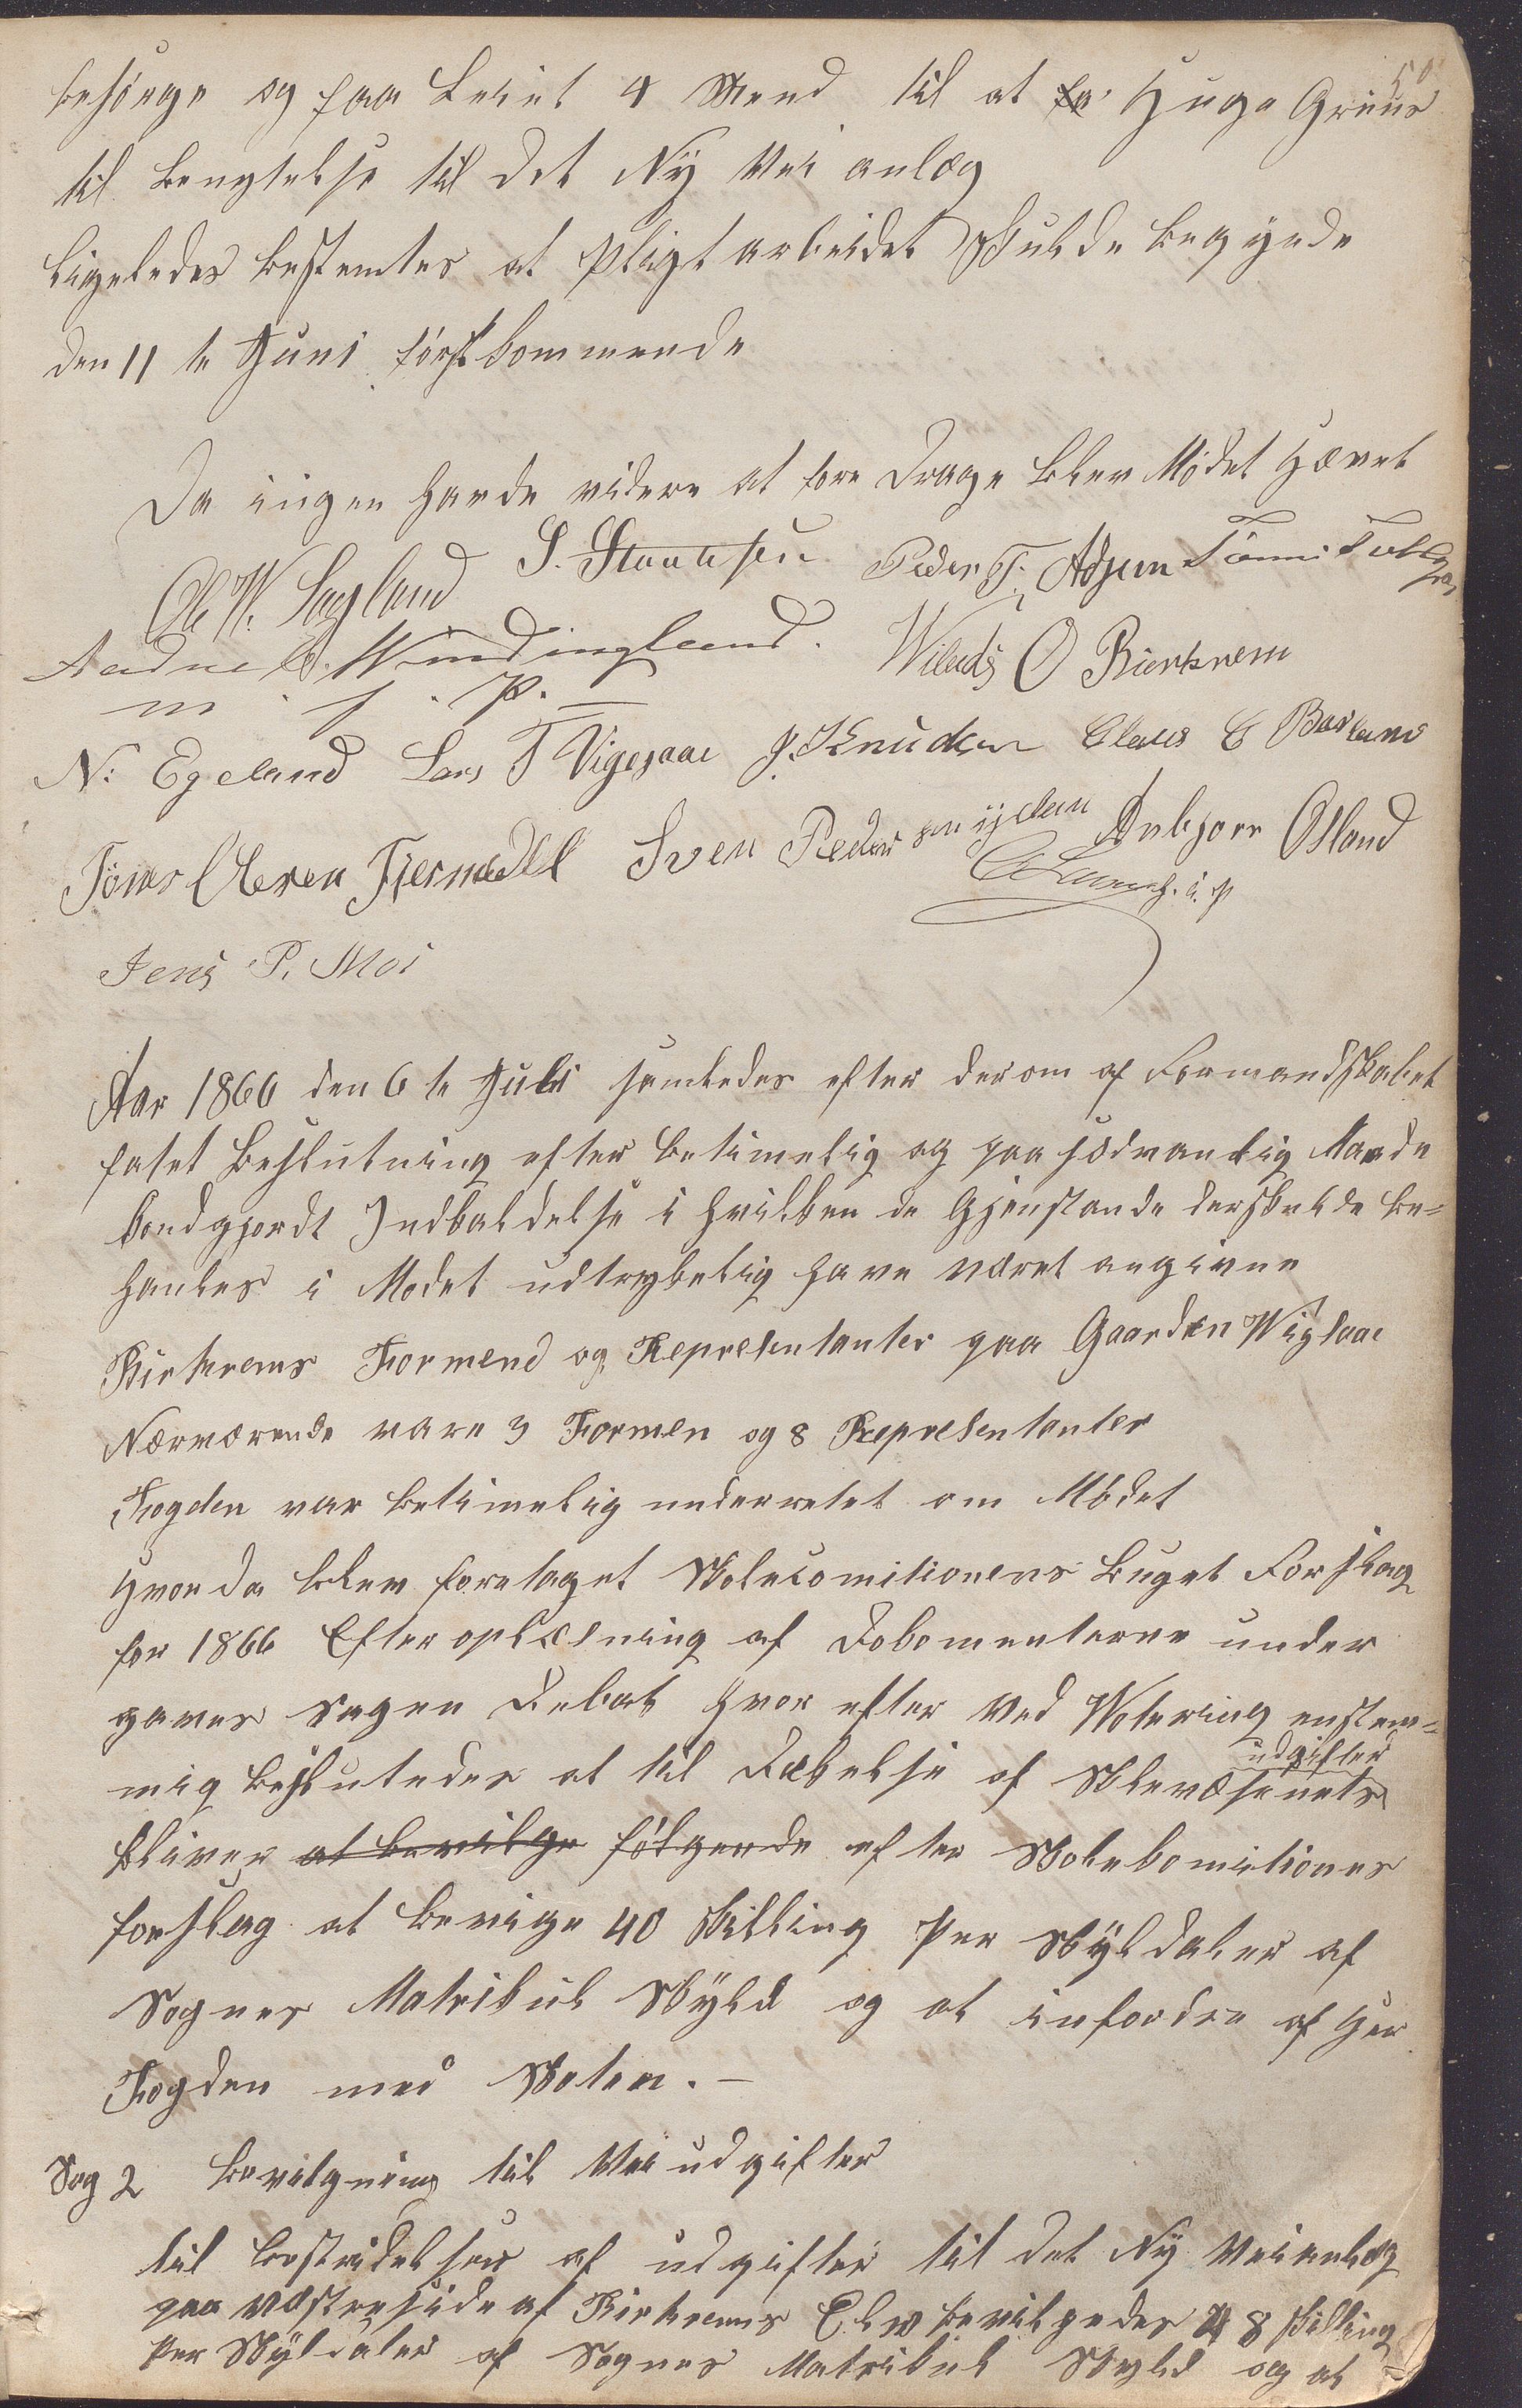 50
besörge og faa Leiet 4 Mend til at fa Huge Gruus
til Benytelse til det Ny Vei anlæg
Ligeledes bestemtes at Pligt arbeidet skulde begynde
den 11 te Juni först kommende
Da ingen havde videre at fore Drage blev Mödet Hævet
Ole W. Laygland S. Svanesen Peder T. Adsjem Tönnes Tollefsen
Aadne O. Windingland. Wilads O Birkrem
m . f . P. —
N: Egeland Lars T Vigesaae J. Knudsen Claus C Birkrem
Tönes Olesen Tjermedal Sven Pedersen Anbjorr Osland
h. i. P
Jens P. Moi
Aar 1866 den 6 te Juli samledes efter derom af Formandskabet
fatet Beslutning efter betimelig og paa sedvanlig Maade
kundgjordt Indkaldelse i hvilken de Gjenstande der skulde be=
hanles i Modet udtrykelig have været angivne
Birkrems Formend og Representanter paa Gaarden Vigesaae
Nærværende vare 3 Formen og 8 Representanter
Fogden var betimelig underretet om Mödet
Hvor da blev foretaget Skolecomitionens Buget Forslag
for 1866 Efter oplæsning af Dokomenterne under
gaves Sagen Debat hvor efter ved Votering enstem=
mig beslutedes at til Dækelse af Skolevæsenets udgifter
bliver at bevilge fölgende efter Skolekomitiones
forslag at bevige 40 Skilling Per Skyldaler af
Sognes Matrikul Skyld og at infordre af Her
Fogden med Skaten. —
Sag 2 Bevilgning til Vei udgifter
til bestridelser af udgifter til det Ny Veianlæg
paa vestre side af Birkrems Elv bevilgedes 48 Skilling
Per Skyldaler af Sognes Matrikul Skyld og at